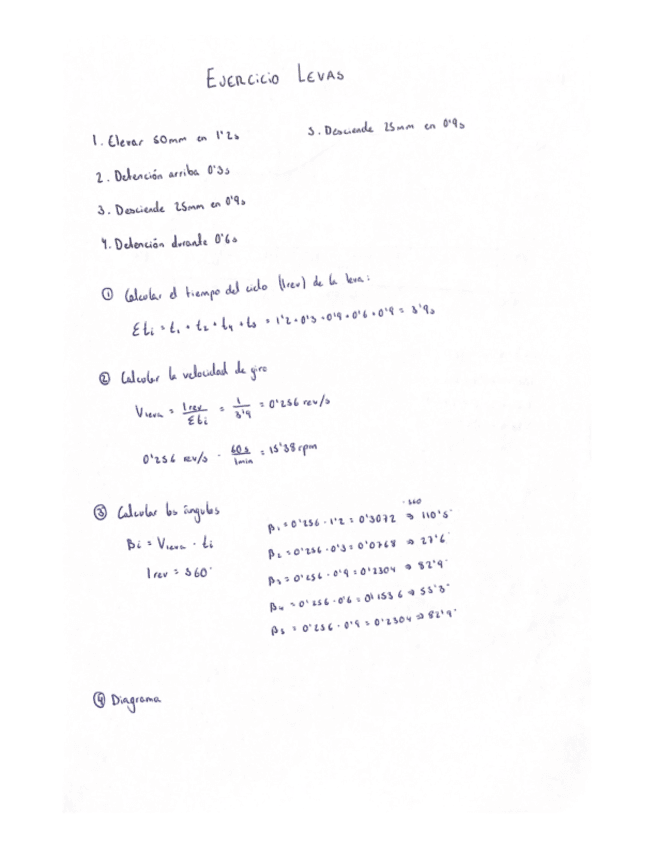 EJERCICIO LEVAS
1. Elevar 50mm en 1'2s
5. Desciende 25mm en 0'9s
2. Detención arriba 0'3s
3. Desciende 25mm en 0'9s
4. Detención durante 0'6s
① Calcular el tiempo del ciclo (1rev) de la leva:
Σti = t₁ + t₂ + t₄ + t₅ = 1'2 + 0'3 + 0'9 + 0'6 + 0'9 = 3'9s
② Calcular la velocidad de giro
Vleva = 1rev / Σti = 1 / 3'9 = 0'256 rev/s
0'256 rev/s · 60s / 1min = 15'38 rpm
③ Calcular los ángulos
Bi = Vleva · ti
1rev = 360°
·360
β₁ = 0'256 · 1'2 = 0'3072 ⇒ 110'5°
β₂ = 0'256 · 0'3 = 0'0768 ⇒ 27'6°
β₃ = 0'256 · 0'9 = 0'2304 ⇒ 82'9°
β₄ = 0'256 · 0'6 = 0'1536 ⇒ 55'3°
β₅ = 0'256 · 0'9 = 0'2304 ⇒ 82'9°
④ Diagrama